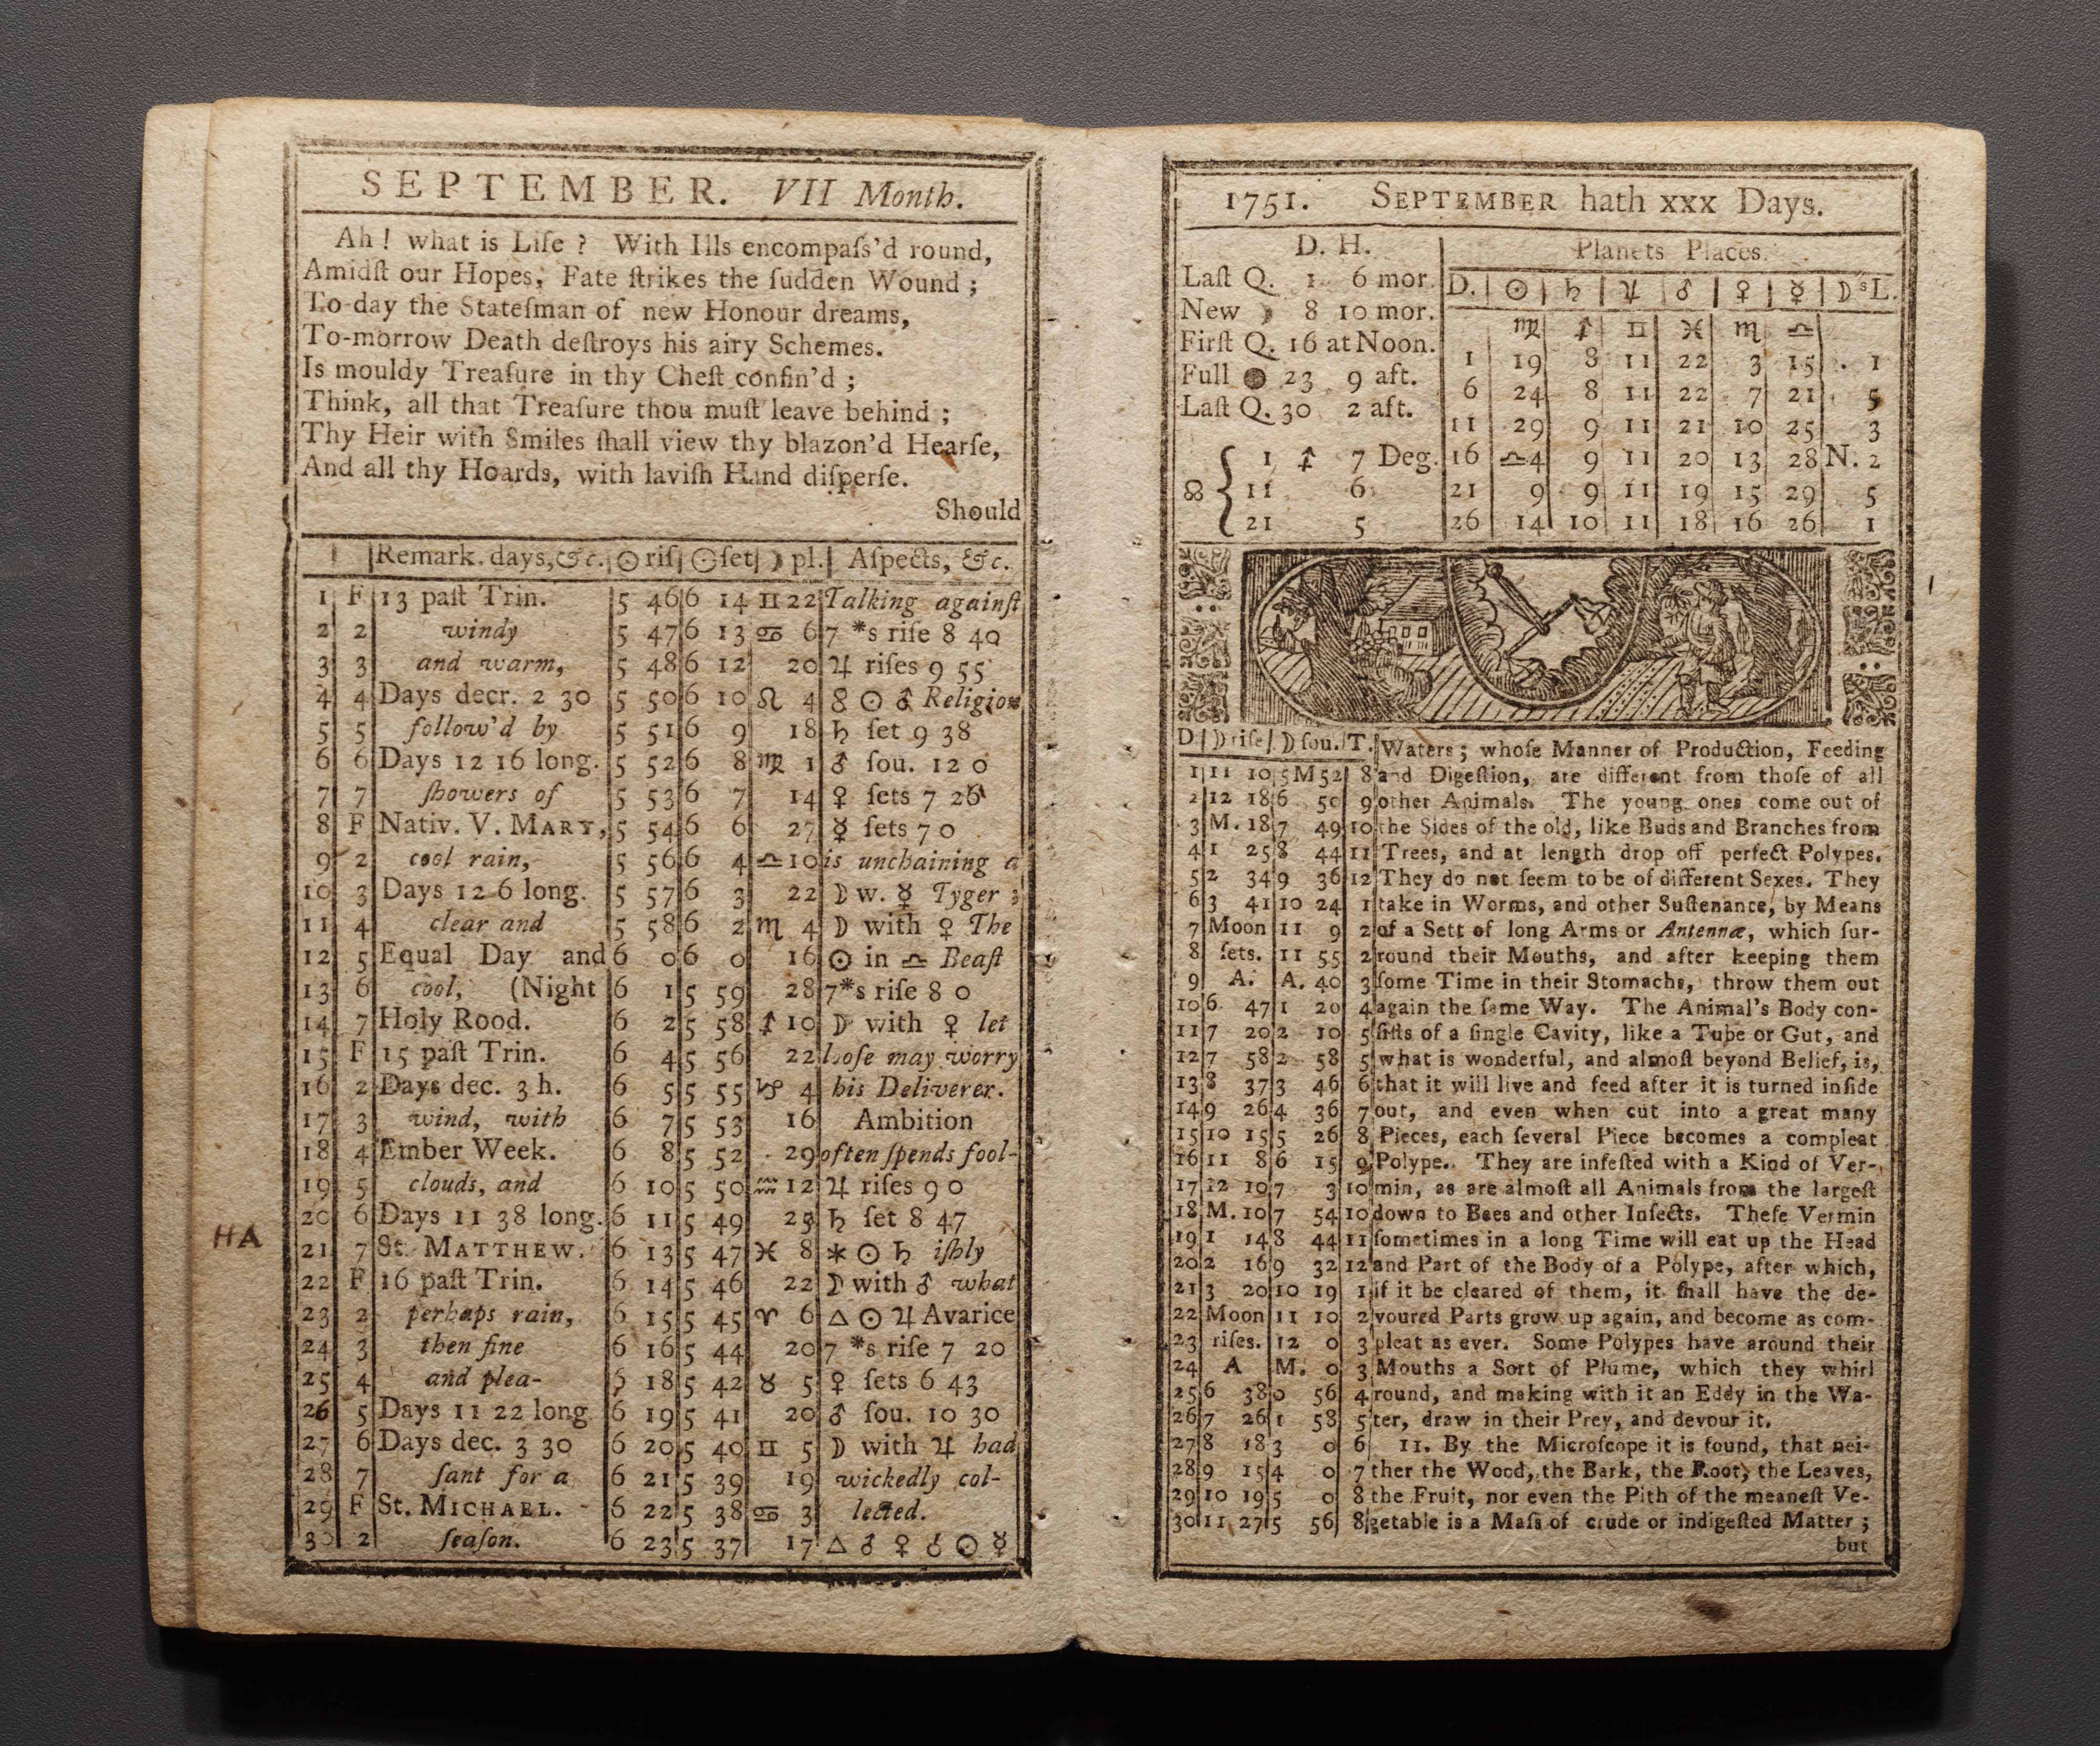 SEPTEMBER. VII Month.
Ah! what is Life? With Ills encompaſs'd round,
Amidſt our Hopes, Fate ſtrikes the ſudden Wound;
To-day the Stateſman of new Honour dreams,
To-morrow Death deſtroys his airy Schemes.
Is mouldy Treaſure in thy Cheſt confin'd;
Think, all that Treaſure thou muſt leave behind;
Thy Heir with Smiles ſhall view thy blazon'd Hearſe,
And all thy Hoards, with laviſh Hand diſperſe.
Should
Remark. days, &c. ☉ riſ ☉ ſet ☽ pl. Aſpects, &c.
1 F 13 paſt Trin. 5 46 6 14 ♊ 22 Talking againſt
2 2 windy 5 47 6 13 ♋ 6 7 *s riſe 8 40
3 3 and warm, 5 48 6 12 20 ♃ riſes 9 55
4 4 Days decr. 2 30 5 50 6 10 ♌ 4 ☍ ☉ ♂ Religion
5 5 follow'd by 5 51 6 9 18 ♄ ſet 9 38
6 6 Days 12 16 long. 5 52 6 8 ♍ 1 ♂ ſou. 12 0
7 7 ſhowers of 5 53 6 7 14 ♀ ſets 7 26
8 F Nativ. V. MARY, 5 54 6 6 27 ☿ ſets 7 0
9 2 cool rain, 5 56 6 4 ♎ 10 is unchaining a
10 3 Days 12 6 long. 5 57 6 3 22 ☽ w. ☿ Tyger;
11 4 clear and 5 58 6 2 ♏ 4 ☽ with ♀ The
12 5 Equal Day and 6 0 6 0 16 ☉ in ♎ Beaſt
13 6 cool, (Night 6 1 5 59 28 7 *s riſe 8 0
14 7 Holy Rood. 6 2 5 58 ♐ 10 ☽ with ♀ let
15 F 15 paſt Trin. 6 4 5 56 22 looſe may worry
16 2 Days dec. 3 h. 6 5 5 55 ♑ 4 his Deliverer.
17 3 wind, with 6 7 5 53 16 Ambition
18 4 Ember Week. 6 8 5 52 29 often ſpends fool-
19 5 clouds, and 6 10 5 50 ♒ 12 ♃ riſes 9 0
20 6 Days 11 38 long. 6 11 5 49 25 ♄ ſet 8 47
HA
21 7 St. MATTHEW. 6 13 5 47 ♓ 8 ⚹ ☉ ♄ iſhly
22 F 16 paſt Trin. 6 14 5 46 22 ☽ with ♂ what
23 2 perhaps rain, 6 15 5 45 ♈ 6 △ ☉ ♃ Avarice
24 3 then fine 6 16 5 44 20 7 *s riſe 7 20
25 4 and plea- 6 18 5 42 ♉ 5 ♀ ſets 6 43
26 5 Days 11 22 long 6 19 5 41 20 ♂ ſou. 10 30
27 6 Days dec. 3 30 6 20 5 40 ♊ 5 ☽ with ♃ had
28 7 ſant for a 6 21 5 39 19 wickedly col-
29 F St. MICHAEL. 6 22 5 38 ♋ 3 lected.
30 2 ſeaſon. 6 23 5 37 17 △ ♂ ♀ ☌ ☉ ☿
1751. SEPTEMBER hath xxx Days.
D. H.
Laſt Q. 1 6 mor.
New ☽ 8 10 mor.
Firſt Q. 16 at Noon.
Full ● 23 9 aft.
Laſt Q. 30 2 aft.
☊ { 1 ♐ 7 Deg.
11 6
21 5
Planets Places.
D. ☉ ♄ ♃ ♂ ♀ ☿ ☽sL.
♍ ♐ ♊ ♓ ♏ ♎
1 19 8 11 22 3 15 1
6 24 8 11 22 7 21 5
11 29 9 11 21 10 25 3
16 ♎4 9 11 20 13 28 N. 2
21 9 9 11 19 15 29 5
26 14 10 11 18 16 26 1
D ☽ riſe ☽ ſou. T. Waters; whoſe Manner of Production, Feeding
1 11 10 5M52 8 and Digeſtion, are different from thoſe of all
2 12 18 6 50 9 other Animals. The young ones come out of
3 M. 18 7 49 10 the Sides of the old, like Buds and Branches from
4 1 25 8 44 11 Trees, and at length drop off perfect Polypes.
5 2 34 9 36 12 They do not ſeem to be of different Sexes. They
6 3 41 10 24 1 take in Worms, and other Suſtenance, by Means
7 Moon 11 9 2 of a Sett of long Arms or Antennæ, which ſur-
8 ſets. 11 55 2 round their Mouths, and after keeping them
9 A. A. 40 3 ſome Time in their Stomachs, throw them out
10 6 47 1 20 4 again the ſame Way. The Animal's Body con-
11 7 20 2 10 5 ſiſts of a ſingle Cavity, like a Tube or Gut, and
12 7 58 2 58 5 what is wonderful, and almoſt beyond Belief, is,
13 8 37 3 46 6 that it will live and feed after it is turned inſide
14 9 26 4 36 7 out, and even when cut into a great many
15 10 15 5 26 8 Pieces, each ſeveral Piece becomes a compleat
16 11 8 6 15 9 Polype. They are infeſted with a Kind of Ver-
17 12 10 7 3 10 min, as are almoſt all Animals from the largeſt
18 M. 10 7 54 10 down to Bees and other Inſects. Theſe Vermin
19 1 14 8 44 11 ſometimes in a long Time will eat up the Head
20 2 16 9 32 12 and Part of the Body of a Polype, after which,
21 3 20 10 19 1 if it be cleared of them, it ſhall have the de-
22 Moon 11 10 2 voured Parts grow up again, and become as com-
23 riſes. 12 0 3 pleat as ever. Some Polypes have around their
24 A M. 0 3 Mouths a Sort of Plume, which they whirl
25 6 38 0 56 4 round, and making with it an Eddy in the Wa-
26 7 26 1 58 5 ter, draw in their Prey, and devour it.
27 8 18 3 0 6 11. By the Microſcope it is found, that nei-
28 9 15 4 0 7 ther the Wood, the Bark, the Root, the Leaves,
29 10 19 5 0 8 the Fruit, nor even the Pith of the meaneſt Ve-
30 11 27 5 56 8 getable is a Maſs of crude or indigeſted Matter;
but